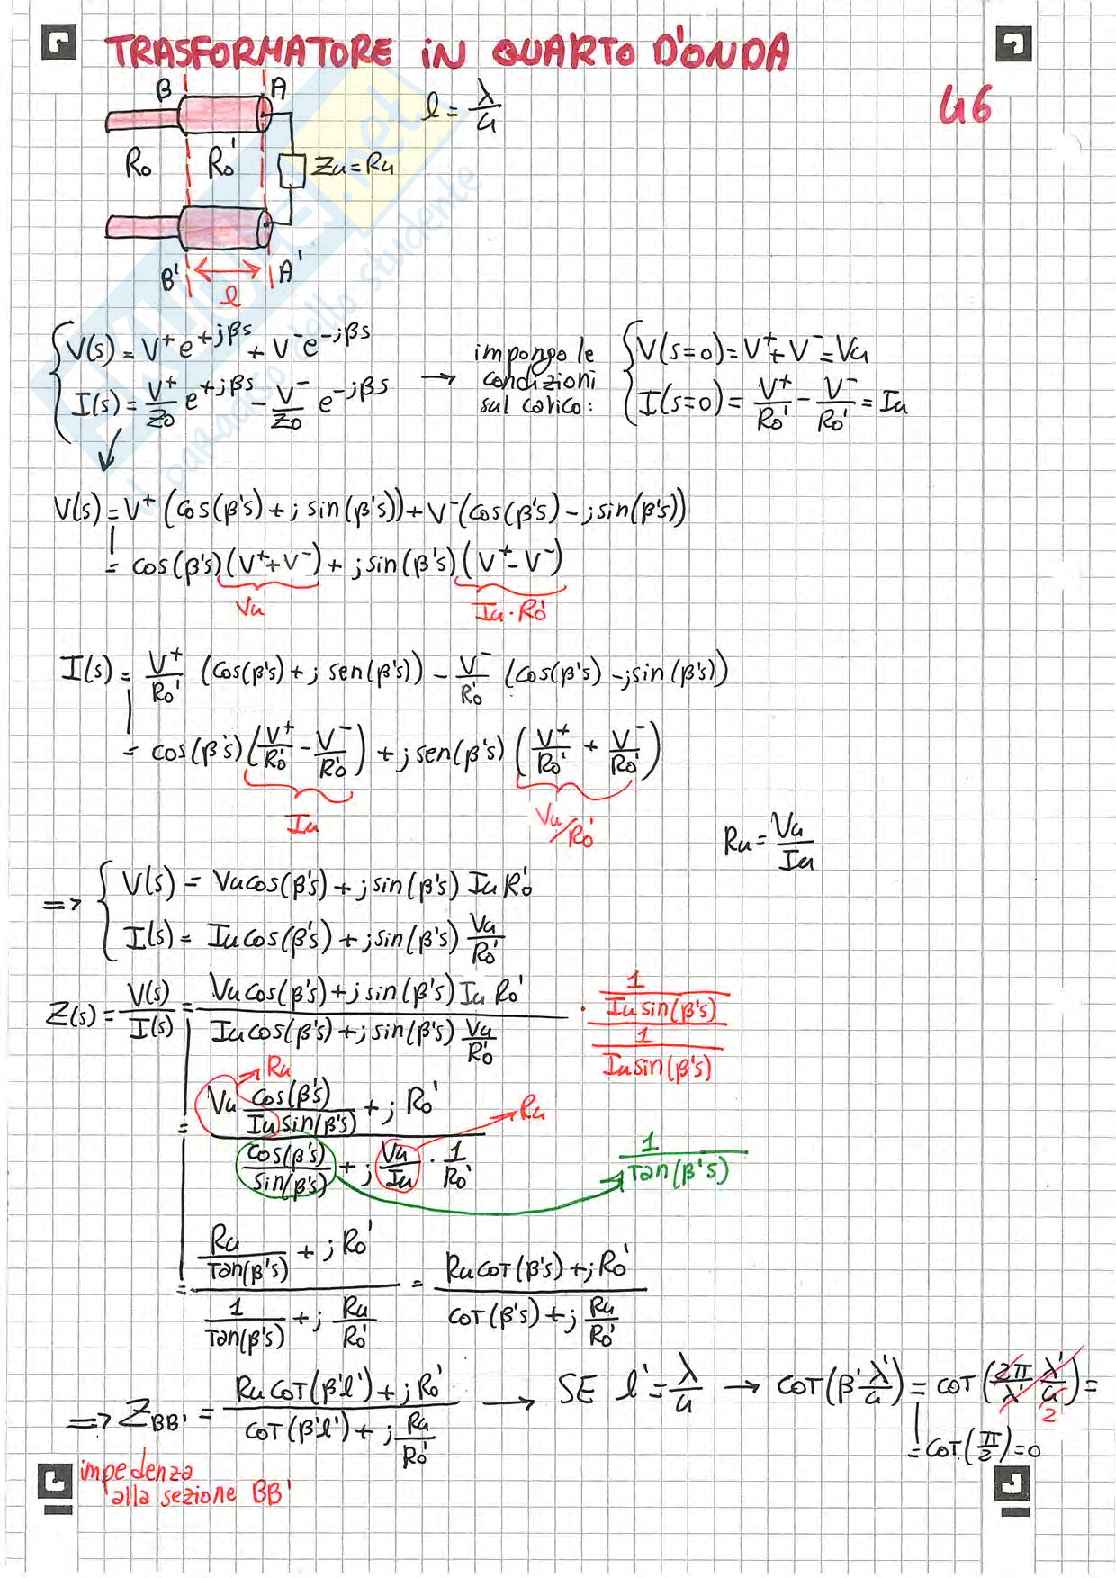 TRASFORMATORE IN QUARTO D'ONDA
46
B A
l = λ/4
R0 R0' Zu = Ru
B' A'
l
V(s) = V⁺ e^{+jβs} + V⁻ e^{-jβs}
I(s) = V⁺/Z0 e^{+jβs} - V⁻/Z0 e^{-jβs}
→ impongo le
condizioni
sul carico:
V(s=0) = V⁺ + V⁻ = Vu
I(s=0) = V⁺/R0' - V⁻/R0' = Iu
V(s) = V⁺ (cos(β's) + j sin(β's)) + V⁻ (cos(β's) - j sin(β's))
= cos(β's) (V⁺ + V⁻) + j sin(β's) (V⁺ - V⁻)
Vu Iu · R0'
I(s) = V⁺/R0' (cos(β's) + j sen(β's)) - V⁻/R0' (cos(β's) - j sin(β's))
= cos(β's) (V⁺/R0' - V⁻/R0') + j sen(β's) (V⁺/R0' + V⁻/R0')
Iu Vu/R0'
Ru = Vu/Iu
=> V(s) = Vu cos(β's) + j sin(β's) Iu R0'
I(s) = Iu cos(β's) + j sin(β's) Vu/R0'
Z(s) = V(s)/I(s) = (Vu cos(β's) + j sin(β's) Iu R0') / (Iu cos(β's) + j sin(β's) Vu/R0') · (1/(Iu sin(β's))) / (1/(Iu sin(β's)))
Ru
= (Vu cos(β's)/(Iu sin(β's)) + j R0') / (cos(β's)/sin(β's) + j Vu/Iu · 1/R0')
Ru
1/Tan(β's)
= (Ru/Tan(β's) + j R0') / (1/Tan(β's) + j Ru/R0') = (Ru COT(β's) + j R0') / (COT(β's) + j Ru/R0')
=> Z_BB' = (Ru COT(β'l') + j R0') / (COT(β'l') + j Ru/R0') → SE l' = λ/4 → COT(β' λ'/4) = COT(2π/λ' λ'/4) =
2
= COT(π/2) = 0
impedenza
alla sezione BB'